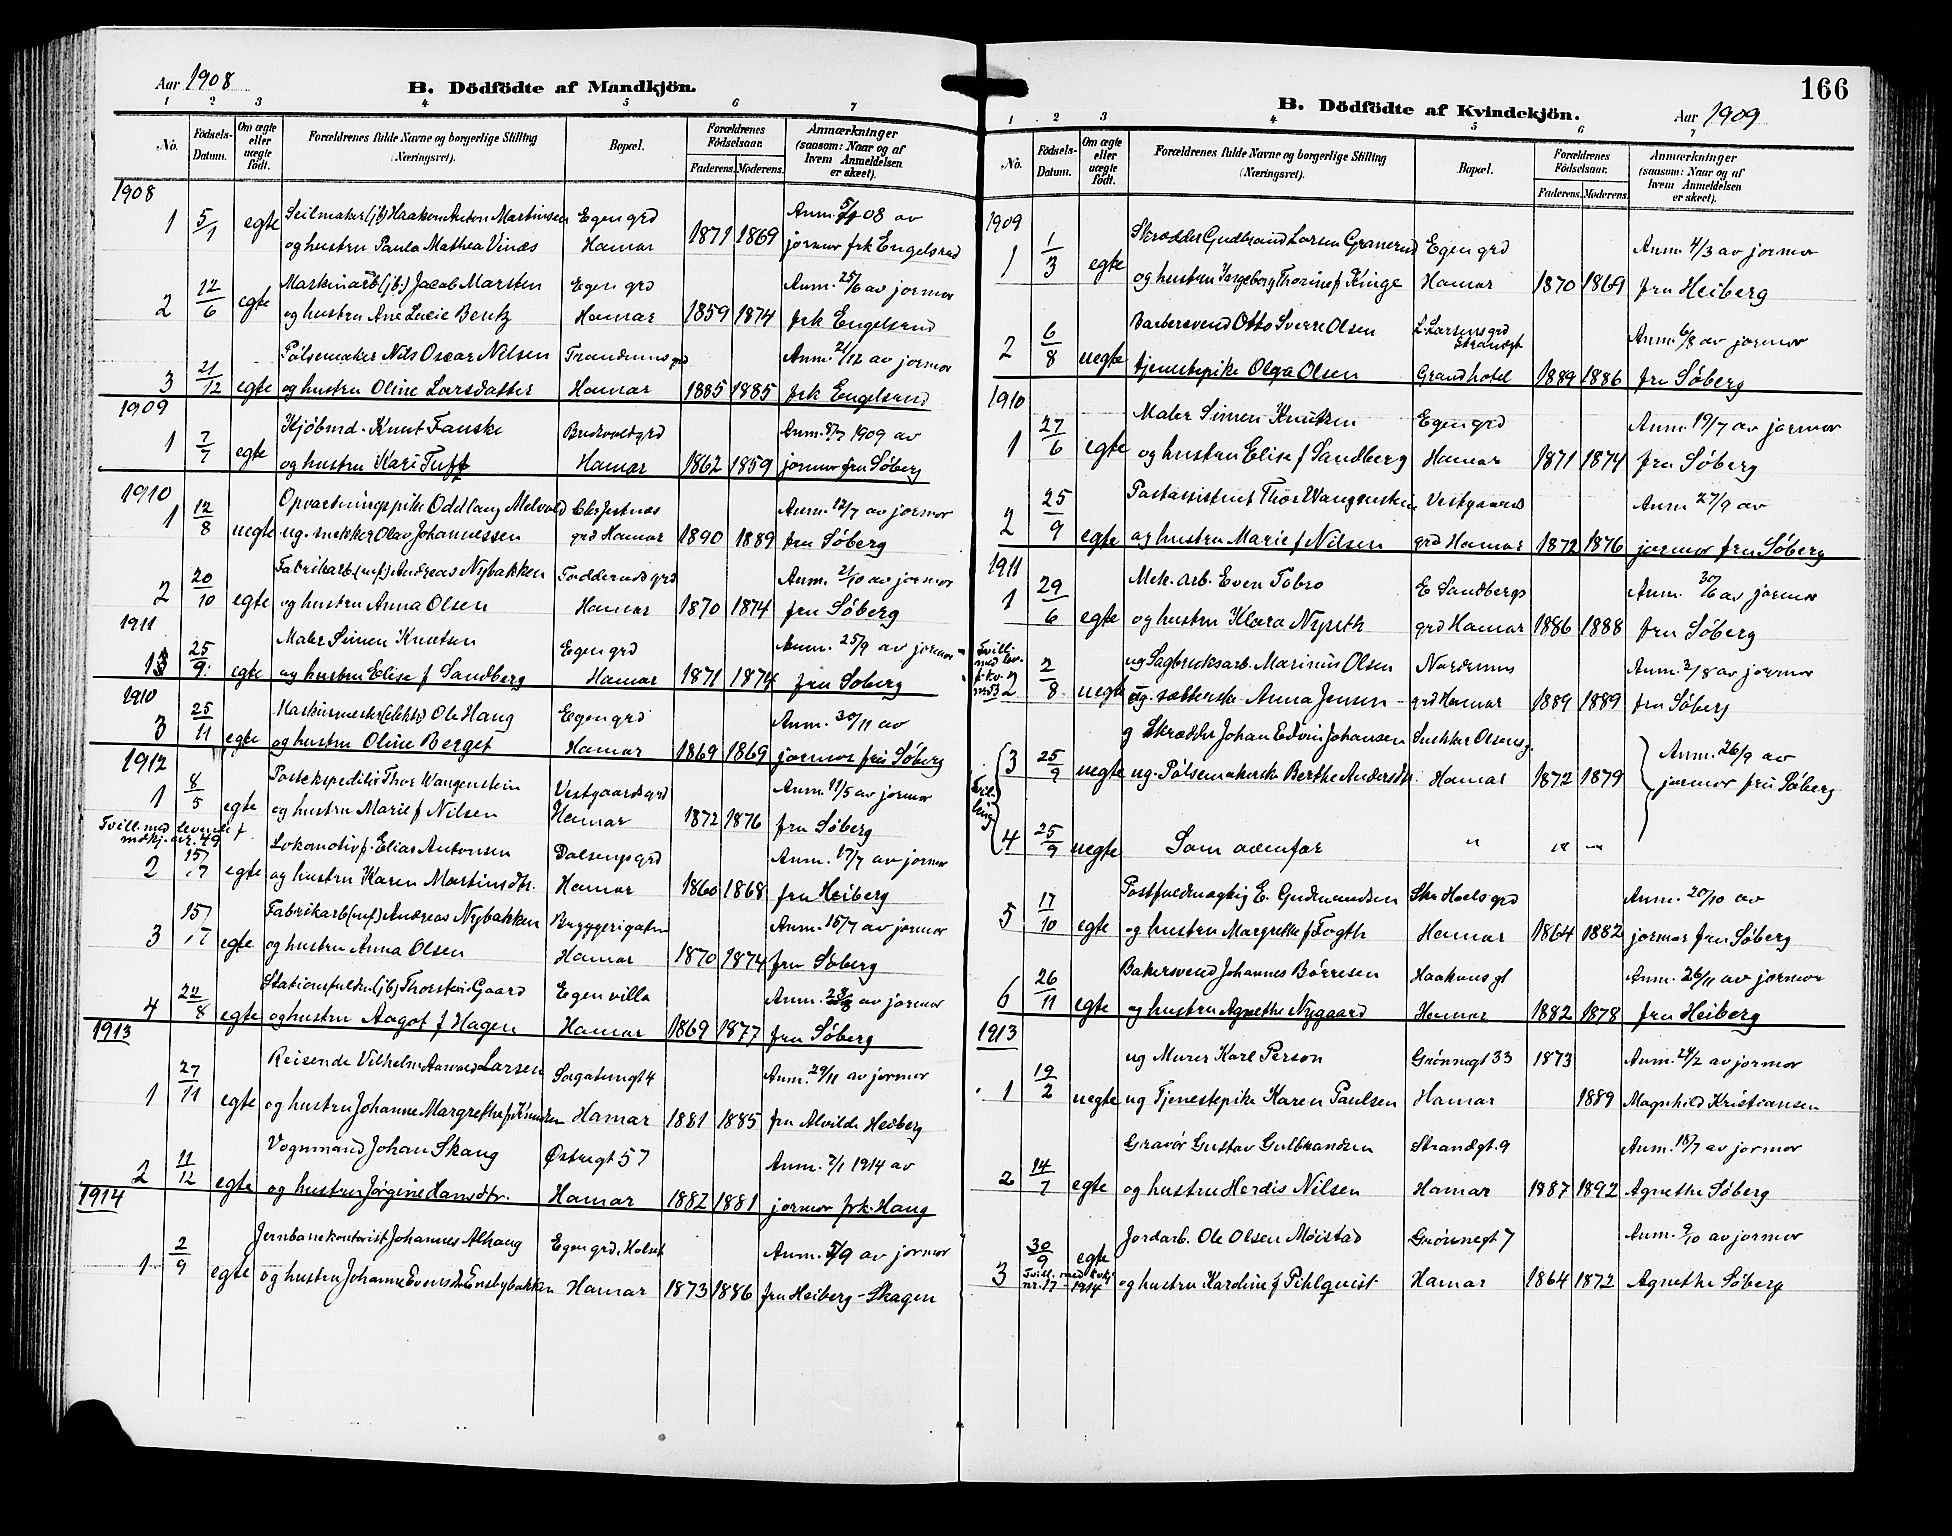 Aar 1908
B. Dödfödte af Mandkjön.
1 2 3 4 5 6 7
No.
Födsels-Datum.
Om ægte eller uægte født.
Forældrenes fulde Navne og borgerlige Stilling (Næringsvei).
Bopæl.
Forældrenes Födselsaar.
Faderens. Moderens.
Anmærkninger (saasom: Naar og af hvem Anmeldelsen er skeet).
1908
Seilmaker (jb) Haakon Anton Martinsen Egen grd Anm. 5/1 08 av
1 5/1 egte og hustru Paula Mathea Vinæs Hamar 1871 1869 jormor frk Engelsrud
Maskinarb (jb.) Jacob Marsten Egen grd Anm. 25/6 av jormor
2 12/6 egte og hustru Ane Lucie Bentz Hamar 1859 1874 frk Engelsrud
Pølsemaker Nils Oscar Nilsen Tranderuns grd Anm. 21/12 av jormor
3 21/12 egte og hustru Oline Larsdatter Hamar 1885 1885 frk Engelsrud
1909
Kjøbmd. Knut Fauske Anm. 8/7 1909 av
1 7/7 egte og hustru Kari Tuff Hamar 1862 1859 jormor fru Søberg
1910
Opvartningspike Oddlaug Melvold Anm. 12/7 av jormor
1 12/8 uegte ug. snekker Olav Johannessen grd Hamar 1890 1889 fru Søberg
Fabrikarb. (mf) Andreas Nybakken Fodderuds grd Anm. 21/10 av jormor
2 20/10 egte og hustru Anna Olsen Hamar 1870 1874 fru Søberg
1911
Maler Simen Knutsen Egen grd Anm. 25/9 av jormor
1 25/9 egte og hustru Elise f Sandberg Hamar 1871 1874 fru Søberg
1910
Maskinmester (elektr) Ole Haug Egen grd Anm. 30/11 av
3 25/11 egte og hustru Oline Berget Hamar 1869 1869 jormor fru Søberg
1912
Postekspeditør Thor Wangenstein Vestgaards grd Anm. 11/5 av jormor
1 8/5 egte og hustru Marie f Nilsen Hamar 1872 1876 fru Søberg
Tvill. med levende f. mdkj. nr. 49
Lokomotivf. Elias Antonsen Dalsengs grd Anm. 17/7 av jormor
2 15/7 egte og hustru Karen Martinsdtr. Hamar 1860 1868 fru Heiberg
Fabrikarb (mf) Andreas Nybakken Bryggerigaten Anm. 16/7 av jormor
3 15/7 egte og hustru Anna Olsen Hamar 1870 1874 fru Søberg
Stationsfuldm (jb) Thorstein Gaard Egen villa Anm. 23/8 av jormor
4 22/8 egte og hustru Aagot f Hagen Hamar 1869 1877 fru Søberg
1913
Reisende Vilhelm Aarvold Larsen Sagatungt 4 Anm. 29/11 av jormor
1 27/11 egte og hustru Johanne Margrethe f. Knudsen Hamar 1881 1885 fru Alvilde Hedberg
Vognmand Johan Skaug Østregt 57 Anm. 2/1 1914 av
2 11/12 egte og hustru Jørgine Hansdtr. Hamar 1882 1881 jormor frk. Haug
1914
Jernbanekontorist Johannes Alhaug Egen grd. Holset Anm. 5/9 av jormor
1 2/9 egte og hustru Johanne Evensdtr Enebybakken Hamar 1873 1886 fru Heiberg-Skagen
166
B. Dödfödte af Kvindekjön.
Aar 1909
1 2 3 4 5 6 7
No.
Födsels-Datum.
Om ægte eller uægte født.
Forældrenes fulde Navne og borgerlige Stilling (Næringsvei).
Bopæl.
Forældrenes Födselsaar.
Faderens. Moderens.
Anmærkninger (saasom: Naar og af hvem Anmeldelsen er skeet).
1909
Skrædder Gudbrand Larsen Granerud Egen grd Anm 4/3 av jormor
1 1/3 egte og hustru Ingeborg Thorine f Kinge Hamar 1870 1869 fru Heiberg
Barbersvend Otto Sverre Olsen L. Larsens grd Strandgt Anm. 6/8 av jormor
2 6/8 uegte tjenestepike Olga Olsen Grand hotel 1889 1886 fru Søberg
1910
Maler Simen Knutsen Egen grd Anm. 19/7 av jormor
1 27/6 egte og hustru Elise f Sandberg Hamar 1871 1874 fru Søberg
Postassistent Thor Wangenstein Vestgaard Anm 27/9 av
2 25/9 egte og hustru Marie f Nilsen grd Hamar 1872 1876 jormor fru Søberg
1911
Mek. arb. Even Tobro E Sandbergs Anm. 30/6 av jormor
1 29/6 egte og hustru Klara Nyseth grd Hamar 1886 1888 fru Søberg
Tvill. med lev. f. kv.
ug Sagbruksarb. Marinius Olsen Anm. 2/8 av jormor
2 2/8 uegte ug. sætterske Anna Jensen grd Hamar 1889 1889 fru Søberg
g Skrædder Johan Edvin Johansen Snekker Olsens g. Anm. 26/9 av
3 25/9 uegte ug. Pølsemakerske Berthe Andersdtr Hamar 1872 1879 jormor fru Søberg
Tvillinger
4 25/9 uegte Som ovenfor " " "
Postfuldmægtig E. Gudmundsen Skr Hoels grd Anm. 20/10 av
5 17/10 egte og hustru Margrethe f Fogth Hamar 1864 1882 jormor fru Søberg
Bakersvend Johannes Børresen Haakons gt Anm. 26/11 av jormor
6 26/11 egte og hustru Agnethe Nygaard Hamar 1882 1878 fru Heiberg
1913
ug Murer Karl Person Grønnegt 33 1873 Anm. 24/2 av jormor
1 19/2 uegte ug Tjenestepike Karen Paulsen Hamar 1889 Magnhild Kristiansen
Gravør Gustav Gulbrandsen Strandgt. 9 Anm. 18/7 av jormor
2 14/7 egte og hustru Herdis Nilsen Hamar 1887 1892 Agnethe Søberg
Jordarb. Ole Olsen Møistad Grønnegt 7 Anm. 9/10 av jormor
3 30/9 egte og hustru Karoline f Pihlquist Hamar 1864 1872 Agnethe Søberg
Tvill. med kvkj nr. 17 - 1914